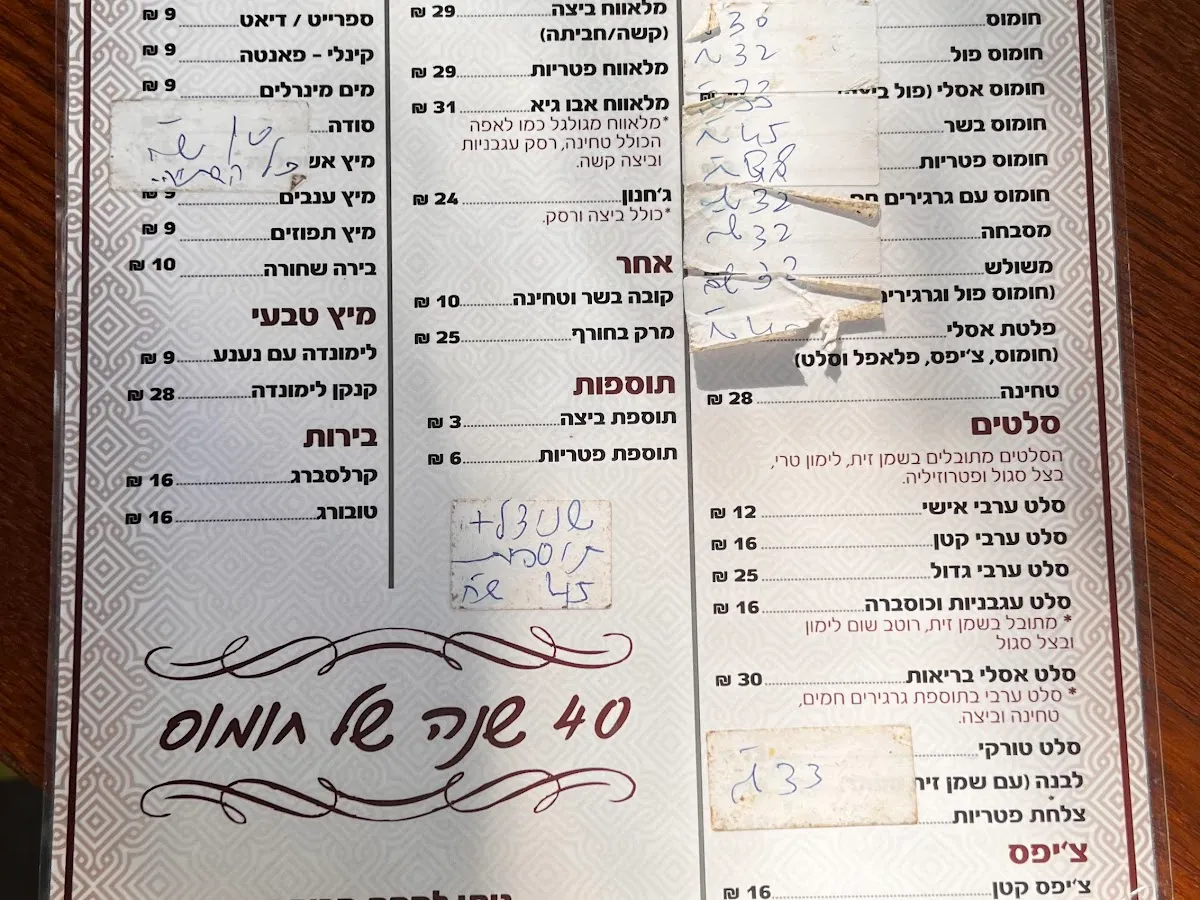 חומוס
30
חומוס פול
32 ₪
חומוס אסלי (פול ביצה
33
חומוס בשר
45 ₪
חומוס פטריות
חומוס עם גרגירים
32 ₪
מסבחה
32 ₪
משולש
(חומוס פול וגרגירים
פלטת אסלי
(חומוס, צ׳יפס, פלאפל וסלט)
טחינה 28 ₪
סלטים
הסלטים מתובלים בשמן זית, לימון טרי,
בצל סגול ופטרוזיליה.
סלט ערבי אישי 12 ₪
סלט ערבי קטן 16 ₪
סלט ערבי גדול 25 ₪
סלט עגבניות וכוסברה 16 ₪
* מתובל בשמן זית, רוטב שום לימון
ובצל סגול
סלט אסלי בריאות 30 ₪
* סלט ערבי בתוספת גרגירים חמים,
טחינה וביצה.
סלט טורקי
לבנה (עם שמן זית
33 ₪
צלחת פטריות
צ׳יפס
צ׳יפס קטן 16 ₪
מלאווח ביצה 29 ₪
(קשה/חביתה)
מלאווח פטריות 29 ₪
מלאווח אבו גיא 31 ₪
*מלאווח מגולגל כמו לאפה
הכולל טחינה, רסק עגבניות
וביצה קשה.
ג׳חנון 24 ₪
*כולל ביצה ורסק.
אחר
קובה בשר וטחינה 10 ₪
מרק בחורף 25 ₪
תוספות
תוספת ביצה 3 ₪
תוספת פטריות 6 ₪
שניצל+
תוספת
45 ש״ח
ספרייט / דיאט 9 ₪
קינלי - פאנטה 9 ₪
מים מינרלים 9 ₪
סודה
מיץ אש
מיץ ענבים 9 ₪
מיץ תפוזים 9 ₪
בירה שחורה 10 ₪
מיץ טבעי
לימונדה עם נענע 9 ₪
קנקן לימונדה 28 ₪
בירות
קרלסברג 16 ₪
טובורג 16 ₪
40 שנה של חומוס